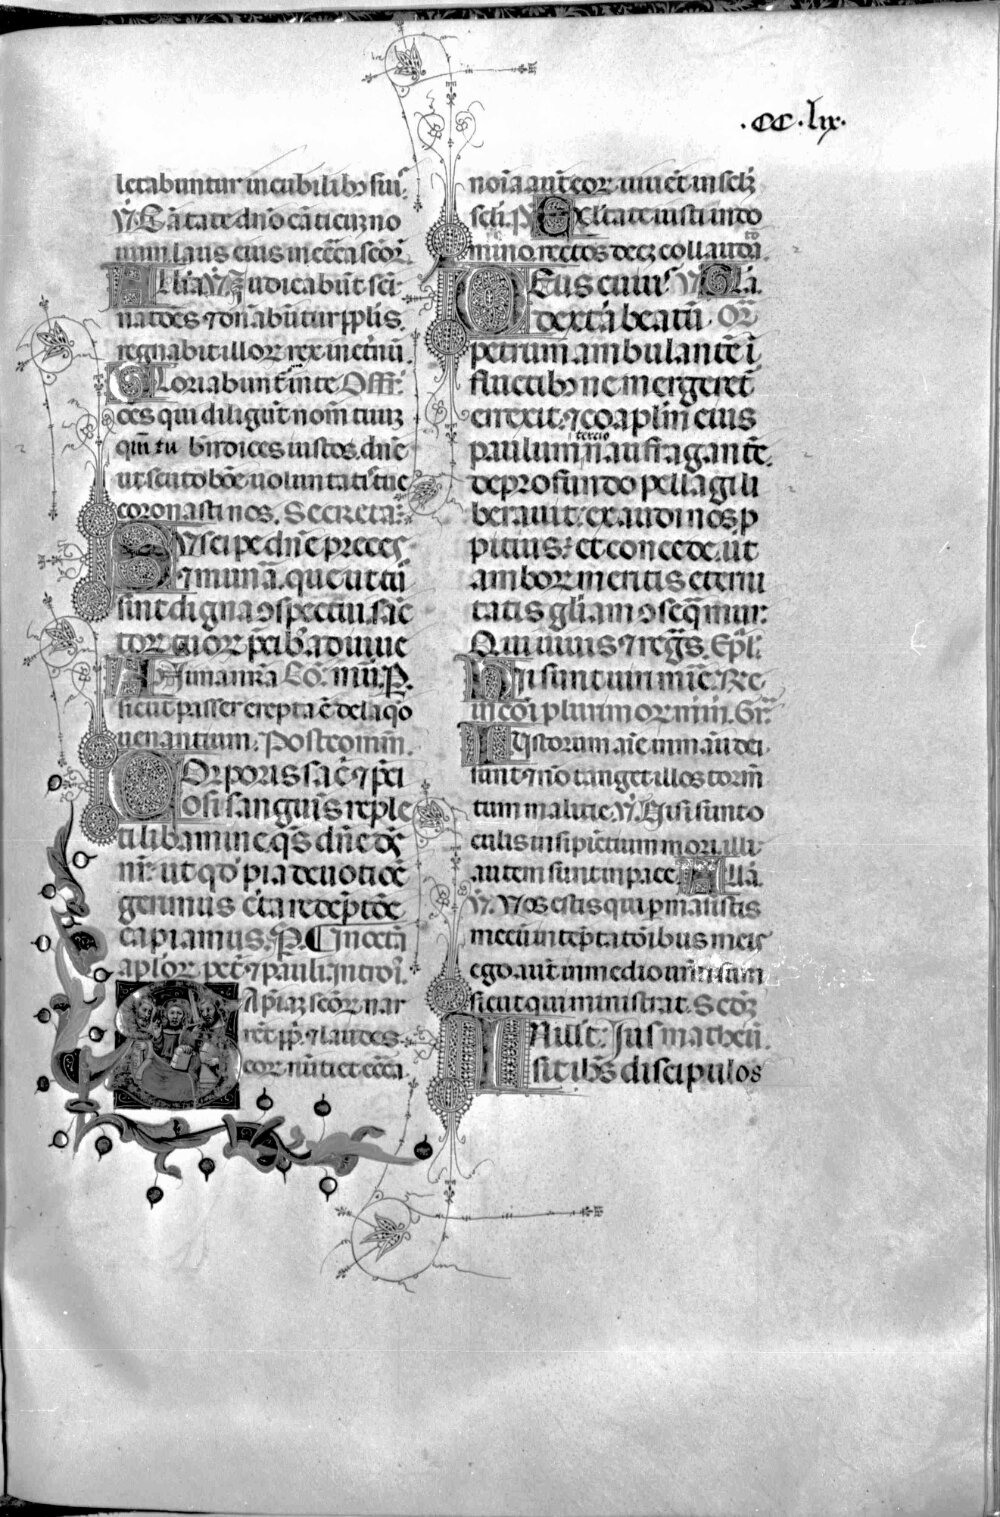 .CC.lix.
letabuntur in cubilibꝫ suis.
V. Cātate dn̄o cāticuꝫ no
uum laus eius in ecc̄ia sc̄oꝝ.
Allīa V. Iudicabūt sc̄i
natōes ⁊ dn̄abūtur pp̄lis.
regnabit illoꝝ rex in et̄nū.
Gloriabunt̄ in te Offr̄.
oēs qui diligūt nom̄ tuuꝫ
qm̄ tu bn̄dices iustos. dn̄e
ut scuto bōe uoluntatis tue
coronasti nos. Secreta.
Suscipe dn̄e preces
⁊ munā. que ut tui
sint digna ꝯspectui. sāc
toꝝ tuoꝝ p̄cibꝫ adiuue
Anima nr̄a Cō. mur. P.
sicut passer erepta ē de laq̄o
uenantium. Postcomm̄.
Corporis sac̄ ⁊ p̄ci
osi sanguis reple
ti libamine q̄s dn̄e dꝫ
nr̄. ut qd̓ pia deuotiōe
gerimus c̄ta redēp̄tōe
capiamus. P. In octā
ap̄loꝝ pet̄ ⁊ pauli. introi.
Sapīaꝫ sc̄oꝝ nar
rēt pp̄. ⁊ laudes
eoꝝ nūtiet ecc̄ia
noīa aut̄ eoꝝ uiuēt in sel̄ꝫ
sc̄li. P̄s Exultate iusti in do
mino rectos decꝫ collaudā.
Deus cuius V. Glā.
dextā beatū Or̄.
petrum ambulantē ī
fluctibꝫ ne mergeret̄
erexit. ⁊ coapl̄m eius
paulum tercio naufragantē.
de profundo pellagi li
berauit. exaudi nos p
pitius. et concede. ut
amboꝝ meritis eterni
tatis gl̄iam ꝯseq̄mur.
Qui uiuis ⁊ regs̄. Epl̄.
Hii sunt uiri mīe. Re
in cōi plurimoꝝ mr̄m. Gr̄.
Iustorum aīe in manu dei
sunt ⁊ nō tanget illos torm̄
tum malitie. V. Uisi sunt o
culis insipiētium mori. illi
autem sunt in pace. Allā.
V. Vos estis qui pmansistis
mecū in tēptatōibus meis
ego. aut̄ in medio ur̄m sum
sicut qui ministrat. Secōꝫ
In illo t. Ius matheū.
sit ihs̄ discipulos